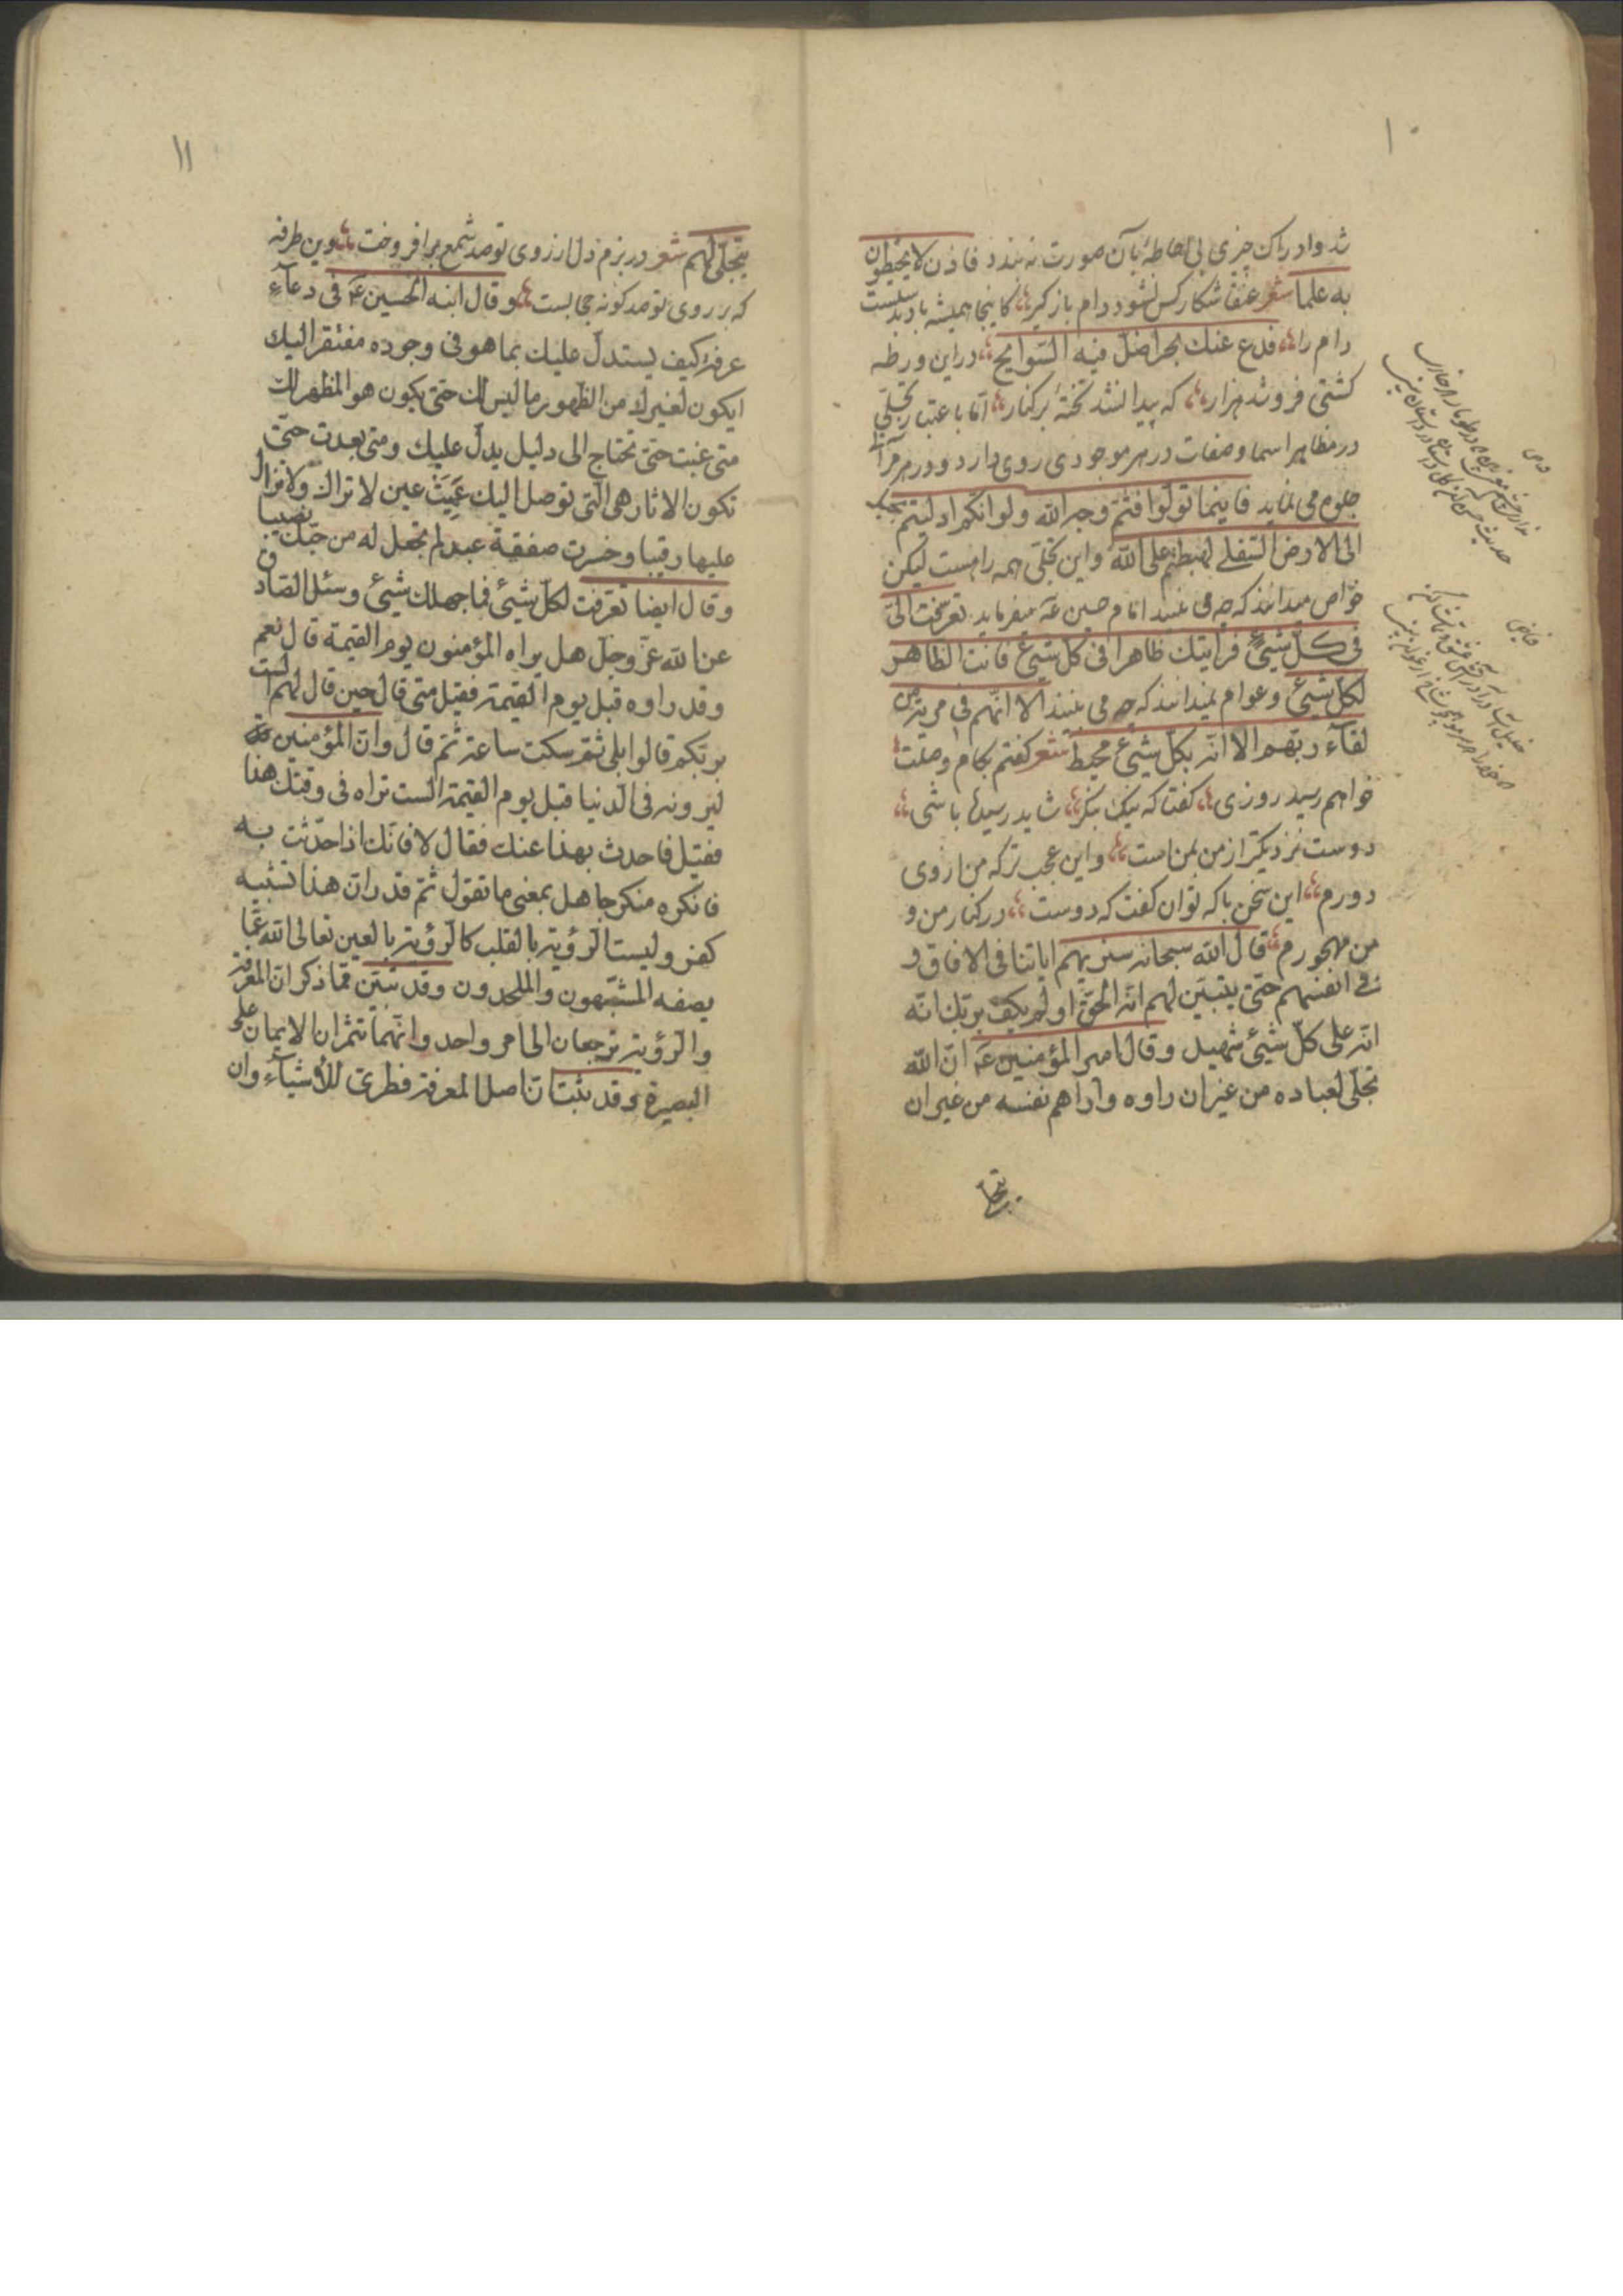 ۱۰
شد و ادراک چیزی بی احاطهٔ بآن صورت نه بندد فاذن لا یحیطون
به علما شعر عنقا شکار کس نشود دام بازگیر کاینجا همیشه باد بدست است
دام را فدع عنک بحرا ضل فیه السوابح در این ورطه
کشتی فرو شد هزار که پیدا نشد تختهٔ بر کنار اما باعتبار تجلی
در مظاهر اسما و صفات در هر موجودی روی دارد و در هر مرآ
جلوه می نماید فاینما تولوا فثم وجه الله ولو انکم ادلیتم بحبل
الی الارض السفلی لهبطتم علی الله و این تجلی همه را هست لیکن
خواص میدانند که چه می بینند امام حسین ع میفرماید تعرفت الیّ
فی کل شیئ فرایتک ظاهرا فی کل شیئ فانت الظاهر
لکل شیئ و عوام نمیدانند که چه می بینند الا انهم فی مریة من
لقآء ربهم الا انه بکل شیئ محیط شعر کفتم بکام وصلت
خواهم رسید روزی کفتا که نیک بنکر شاید رسیده باشی
دوست نزدیکتر از من بمن است و این عجب تر که من از وی
دورم این سخن با که توان کفت که دوست در کنار من و
من مهجورم قال الله سبحانه سنریهم ایاتنا فی الافاق و
فی انفسهم حتی یتبین لهم انه الحق اولم یکف بربک انه
انه علی کل شیئ شهید و قال امیر المؤمنین ع ان الله
تجلی لعباده من غیر ان راوه و اراهم نفسه من غیر ان
یتجلی
۱۱
یتجلی لهم شعر در بزم دل ار زوی تو صد شمع برافروخت وین طرفه
که بر روی تو صد کونه حجابست و قال ابنه الحسین ع فی دعآء
عرفه کیف یستدل علیک بما هو فی وجوده مفتقر الیک
ایکون لغیرک من الظهور ما لیس لک حتی یکون هو المظهر لک
متی غبت حتی تحتاج الی دلیل یدل علیک و متی بعدت حتی
تکون الاثار هی التی توصل الیک عمیت عین لا تراک ولا تزال
علیها رقیبا و خسرت صفقة عبد لم تجعل له من حبک نصیبا
و قال ایضا تعرفت لکل شیئ فما جهلک شیئ و سئل الصادق
عن الله عز و جل هل یراه المؤمنون یوم القیمة قال نعم
و قد راوه قبل یوم القیمة فقیل متی قال حین قال لهم الست
بربکم قالوا بلی ثم سکت ساعة ثم قال و ان المؤمنین
لیرونه فی الدنیا قبل یوم القیمة الست تراه فی وقتک هذا
فقیل فاحدث بهذا عنک فقال لا فانک اذا حدثت به
فانکره منکر جاهل بمعنی ما تقول ثم قدر ان هذا تشبیه
کفر و لیست الرؤیة بالقلب کالرؤیة بالعین تعالی الله عما
یصفه المشبهون و الملحدون و قد تبین مما ذکر ان المعرفة
و الرؤیة ترجعان الی امر واحد و انهما تثمران الایمان علی
البصیرة و قد یثبت ان اصل المعرفة فطری للاشیآء و ان